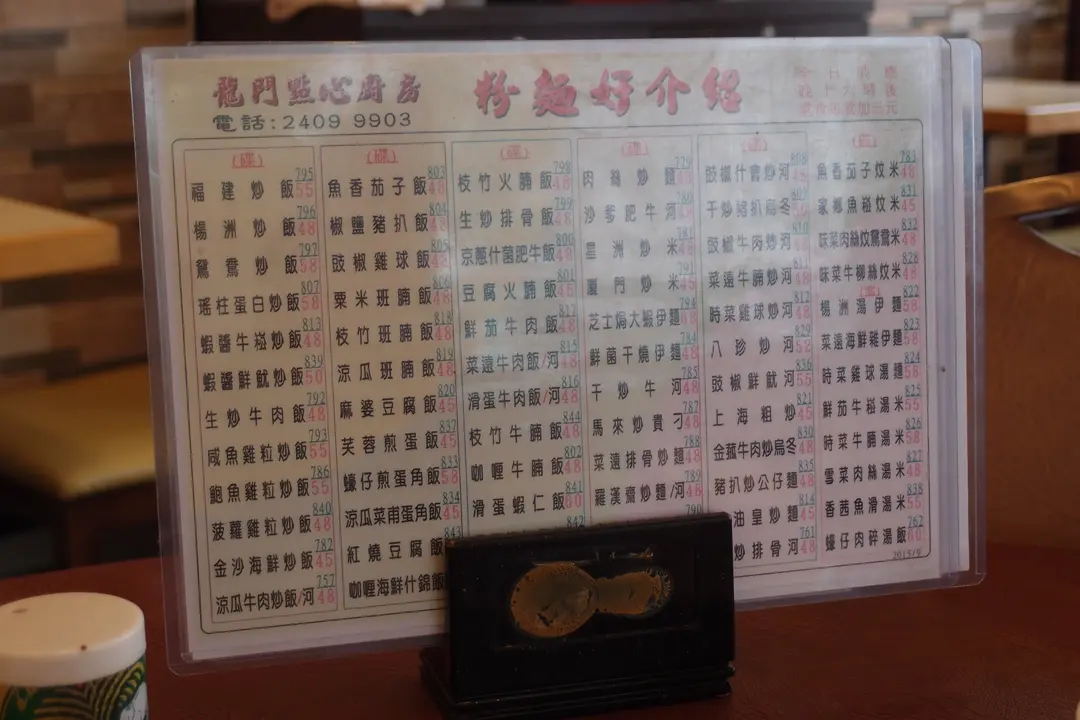 龍門點心廚房
電話:2409 9903
粉麵好介紹
(碟)
795
福建炒飯 55
796
楊洲炒飯 48
797
鴛鴦炒飯 58
807
瑤柱蛋白炒飯 58
813
蝦醬牛崧炒飯 48
839
蝦醬鮮魷炒飯 50
792
生炒牛肉飯 48
793
咸魚雞粒炒飯 55
786
鮑魚雞粒炒飯 55
840
菠蘿雞粒炒飯 48
782
金沙海鮮炒飯 45
757
涼瓜牛肉炒飯/河 48
(碟)
803
魚香茄子飯 48
804
椒鹽豬扒飯 48
805
豉椒雞球飯 48
806
粟米班腩飯 48
818
枝竹班腩飯 48
819
涼瓜班腩飯 48
820
麻婆豆腐飯 45
837
芙蓉煎蛋飯 45
833
蠔仔煎蛋角飯 58
834
涼瓜菜甫蛋角飯 45
843
紅燒豆腐飯
咖喱海鮮什錦飯
(碟)
798
枝竹火腩飯 48
799
生炒排骨飯
800
京蔥什菌肥牛飯
801
豆腐火腩飯 45
817
鮮茄牛肉飯 48
815
菜遠牛肉飯/河 48
816
滑蛋牛肉飯/河 48
844
枝竹牛腩飯 48
802
咖喱牛腩飯 48
841
滑蛋蝦仁飯
842
(碟)
779
肉絲炒麵
沙爹肥牛河
星洲炒米
791
廈門炒米 45
794
芝士焗大蝦伊麵
784
鮮菌干燒伊麵 48
785
干炒牛河 48
787
馬來炒貴刁 48
788
菜遠排骨炒麵 48
789
羅漢齋炒麵/河 48
790
(碟)
808
豉椒什會炒河
干炒豬扒烏冬
810
豉椒牛肉炒河
811
菜遠牛腩炒河 48
812
時菜雞球炒河 48
829
八珍炒河 52
836
豉椒鮮魷河 55
821
上海粗炒 45
830
金菰牛肉炒烏冬 48
835
豬扒炒公仔麵 48
814
油皇炒麵 45
761
炒排骨河 48
783
魚香茄子炆米 48
831
家鄉魚崧炆米 45
832
味菜肉絲炆鴛鴦米 48
828
味菜牛柳絲炆米 48
(窩)
822
楊洲湯伊麵 58
823
菜遠海鮮雜伊麵 58
824
時菜雞球湯麵 58
825
鮮茄牛崧湯米 55
826
時菜牛腩湯米 58
827
雪菜肉絲湯米 48
838
香茜魚滑湯米 55
762
蠔仔肉碎湯飯
2015/9